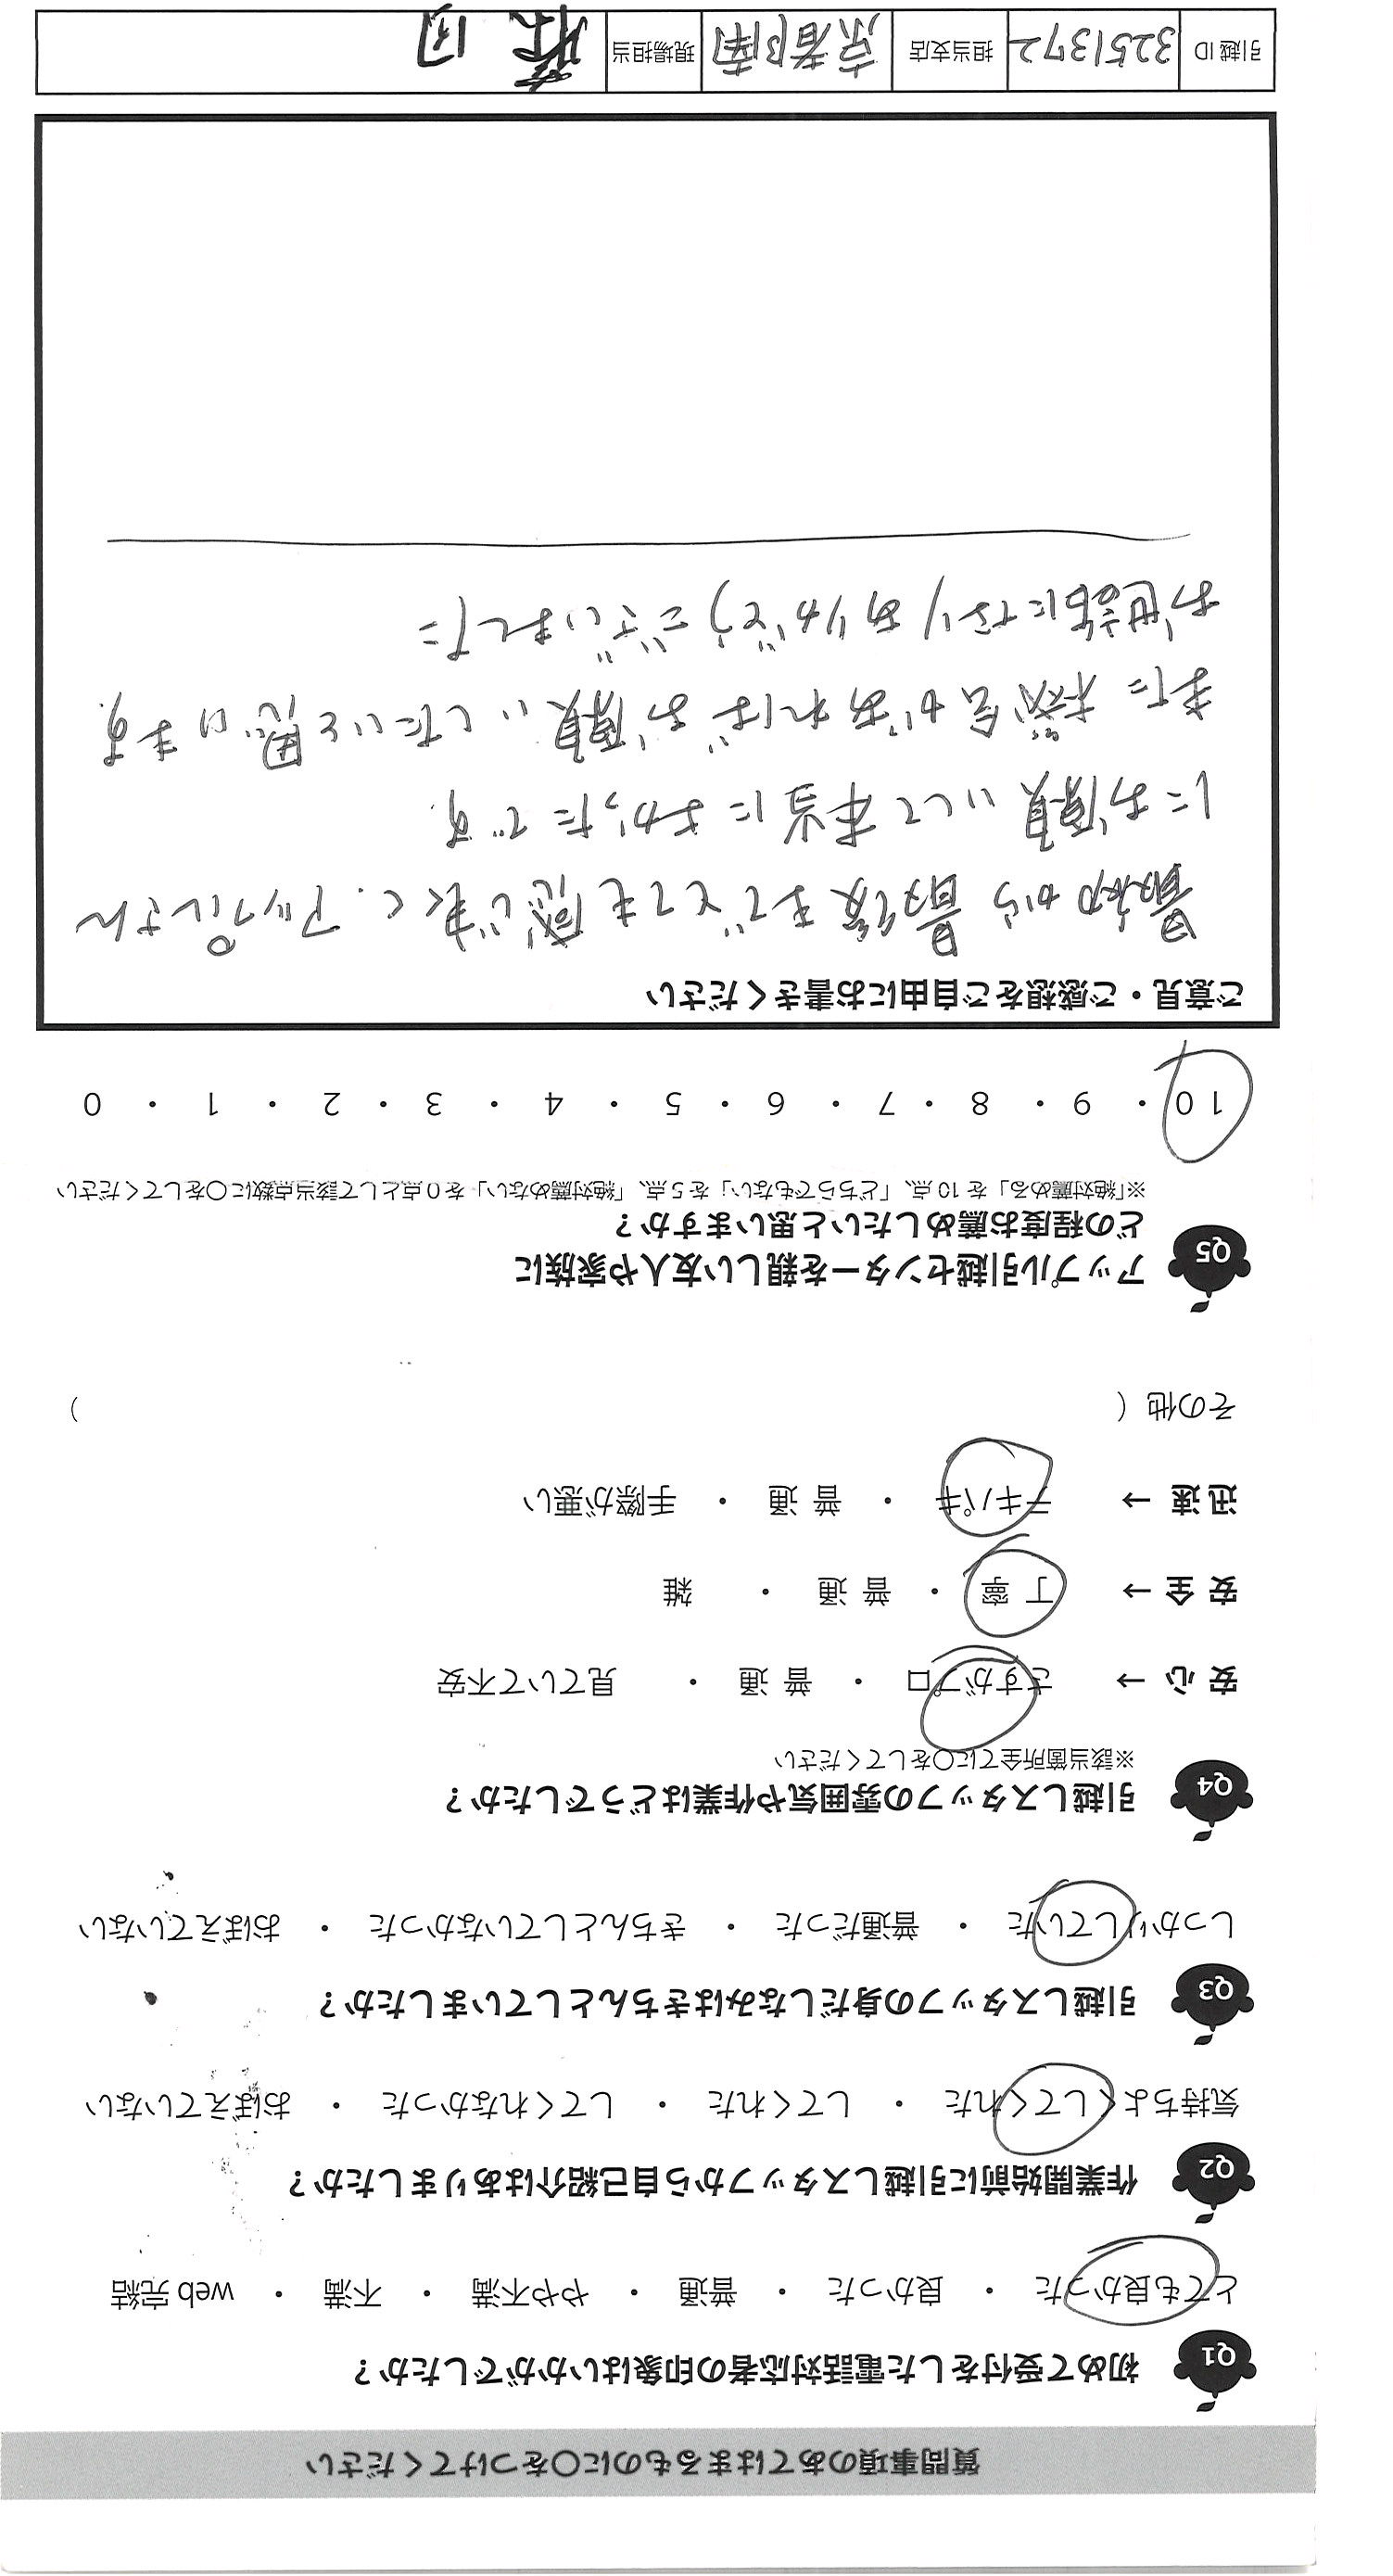 質問事項のあてはまるものに〇をつけてください
Q1 初めて受付をした電話対応者の印象はいかがでしたか？
とても良かった ・ 良かった ・ 普通 ・ やや不満 ・ 不満 ・ web 完結
Q2 作業開始前に引越しスタッフから自己紹介はありましたか？
気持ちよくしてくれた ・ してくれた ・ してくれなかった ・ おぼえていない
Q3 引越しスタッフの身だしなみはきちんとしていましたか？
しっかりしていた ・ 普通だった ・ きちんとしていなかった ・ おぼえていない
Q4 引越しスタッフの雰囲気や作業はどうでしたか？
※該当箇所全てに〇をしてください
安 心 → さすがプロ ・ 普 通 ・ 見ていて不安
安 全 → 丁 寧 ・ 普 通 ・ 雑
迅 速 → テキパキ ・ 普 通 ・ 手際が悪い
その他（ ）
Q5 アップル引越センターを親しい友人や家族に
どの程度お薦めしたいと思いますか？
※「絶対薦める」を 10 点、「どちらでもない」を 5 点、「絶対薦めない」を 0 点として該当点数に〇をしてください
10 ・ 9 ・ 8 ・ 7 ・ 6 ・ 5 ・ 4 ・ 3 ・ 2 ・ 1 ・ 0
ご意見・ご感想をご自由にお書きください
最初から最後まで とても感じ良く、アップルさん
にお願いして本当によかったです。
また機会があればお願いしたいと思います。
お世話になりありがとうございました
引越 ID 3251372 担当支店 京都南 現場担当